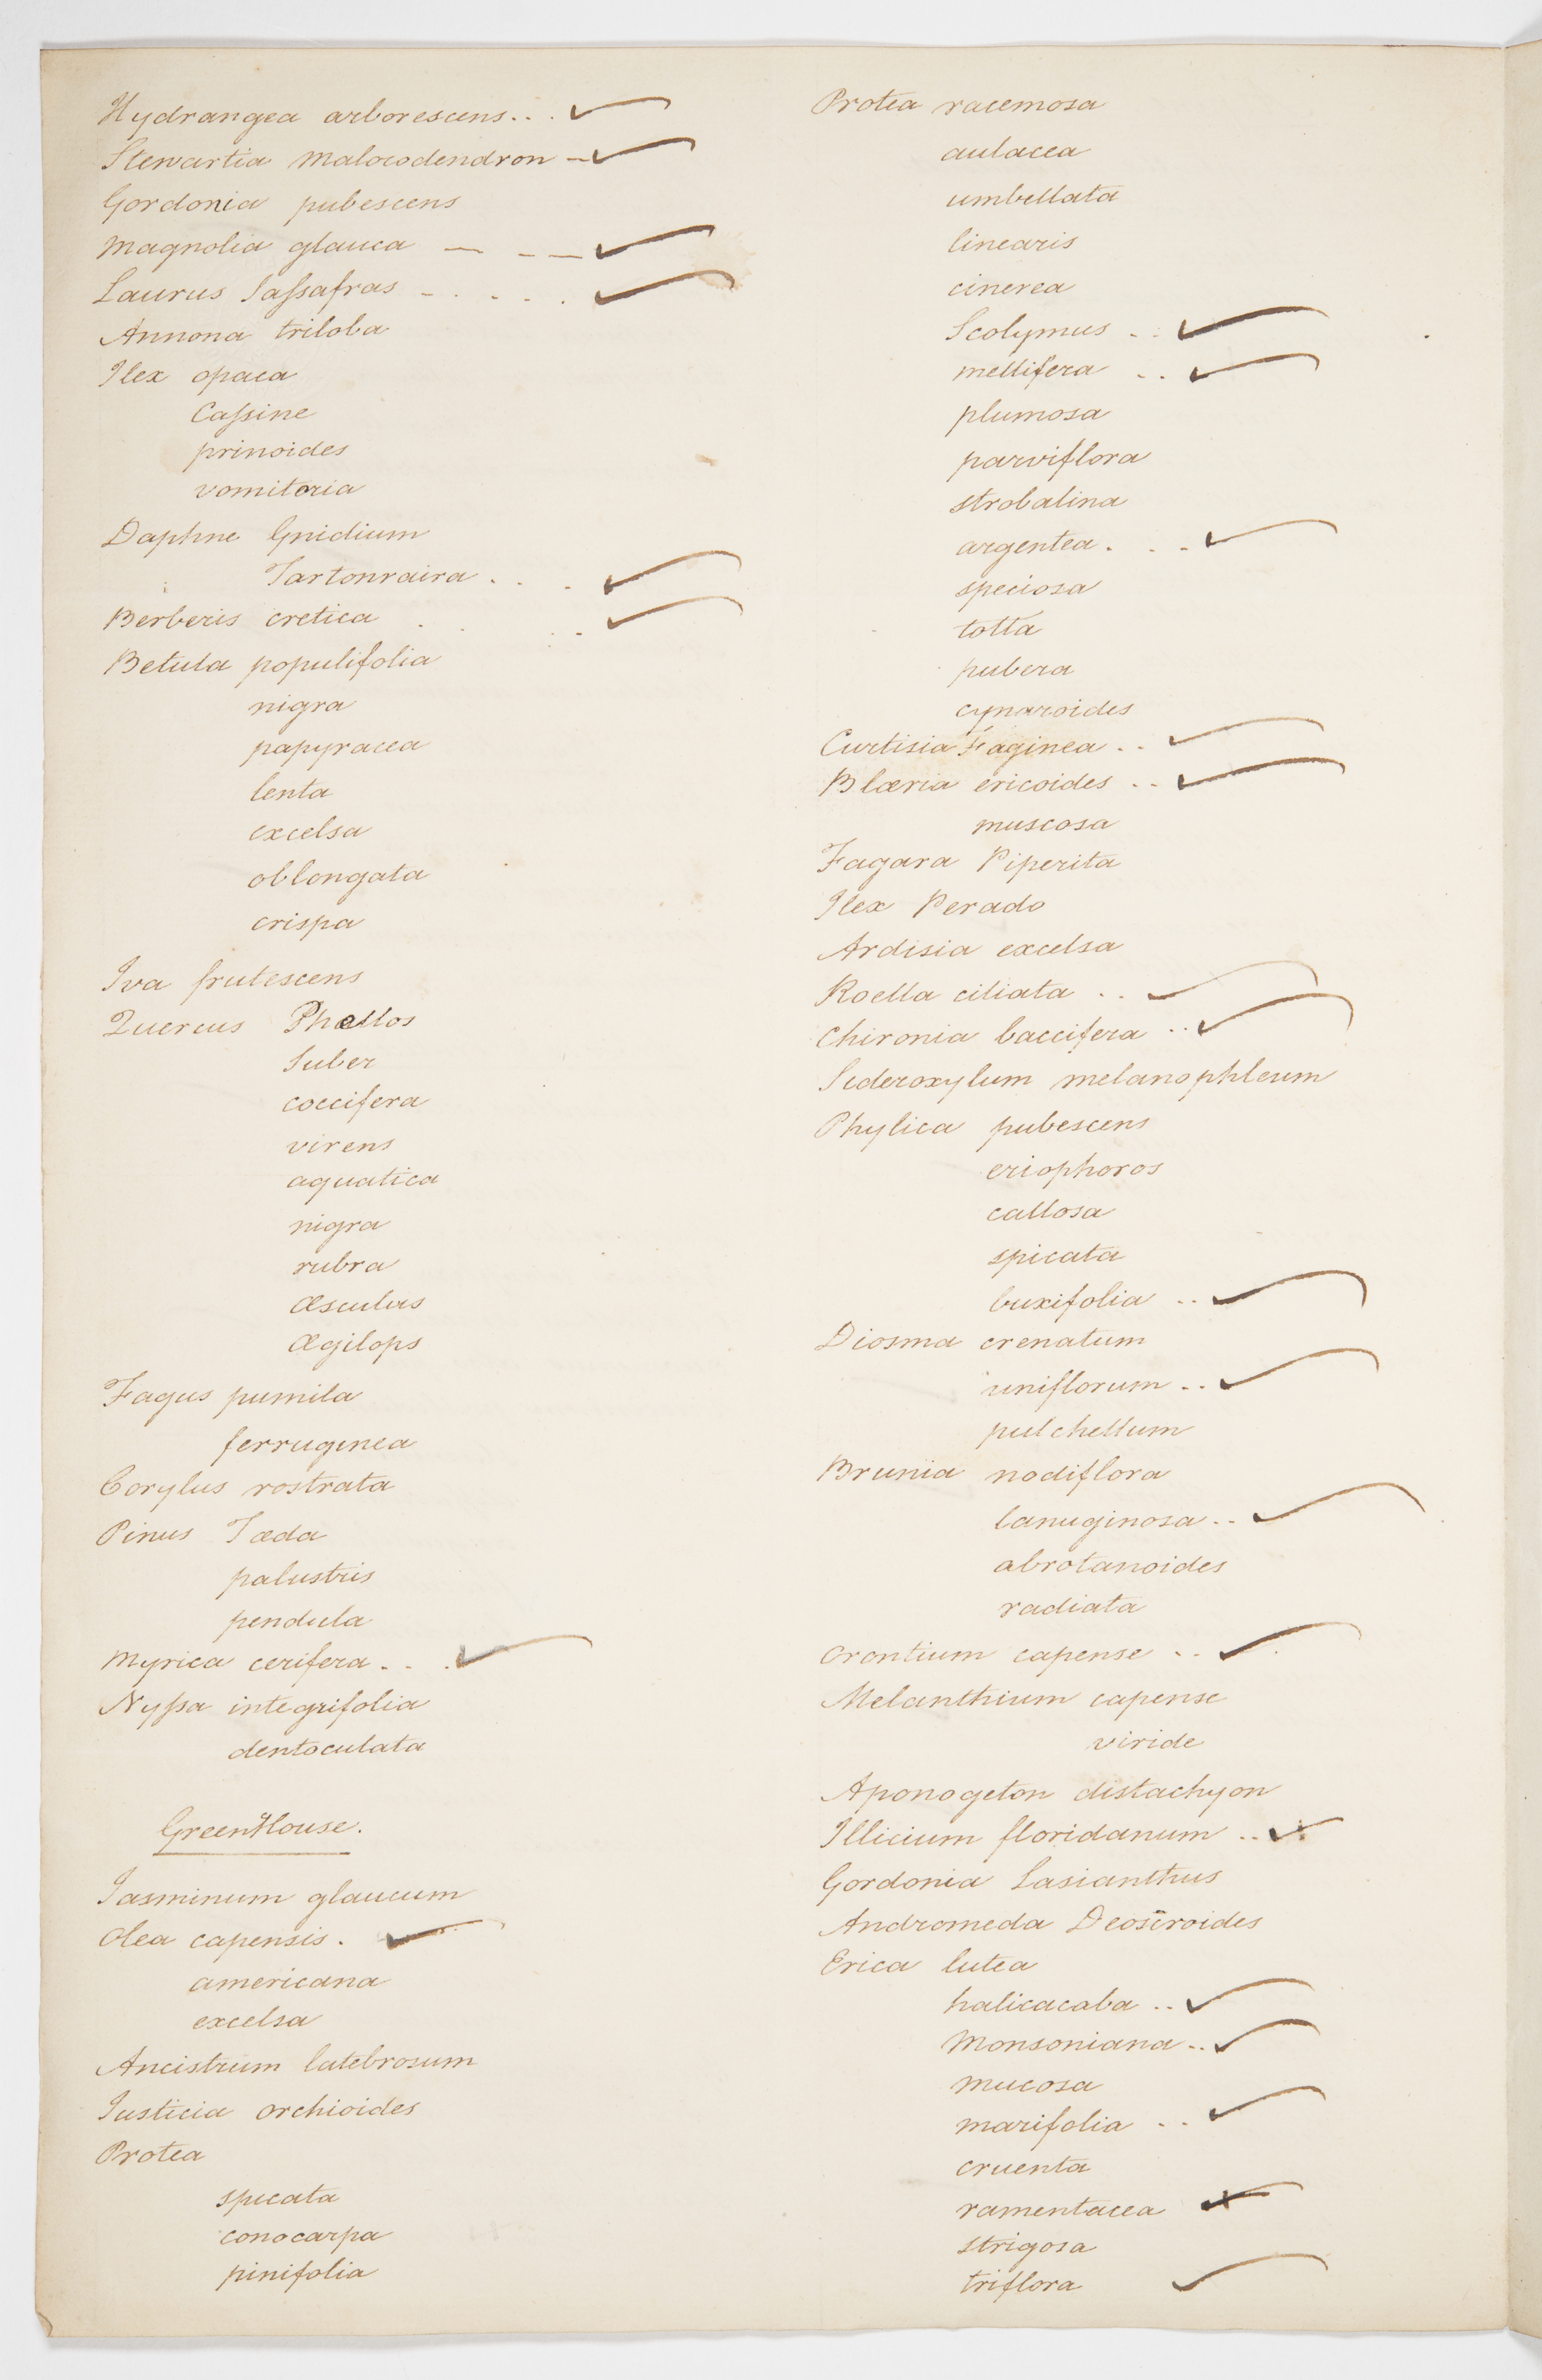 Hydrangea arborescens . . . ✓
Stewartia Malocodendron – ✓
Gordonia pubescens
Magnolia glauca — – — ✓
Laurus Saſsafras – . . . . ✓
Annona triloba
Ilex opaca
Caſsine
prinoides
vomitoria
Daphne Gnidium
Tartonraira . . . ✓
Berberis cretica . . . . ✓
Betula populifolia
nigra
papyracea
lenta
excelsa
oblongata
crispa
Iva frutescens
Quercus Phellos
Suber
coccifera
virens
aquatica
nigra
rubra
Æsculus
Ægilops
Fagus pumila
ferruginea
Corylus rostrata
Pinus Tæda
palustris
pendula
Myrica cerifera . . . ✓
Nyſsa integrifolia
dentoculata
GreenHouse.
Iasminum glaucum
Olea capensis . ✓
americana
excelsa
Ancistrum latebrosum
Iusticia orchioides
Protea
spicata
conocarpa
pinifolia
Protea racemosa
aulacea
umbellata
linearis
cinerea
Scolymus . . ✓
mellifera . . ✓
plumosa
parviflora
strobalina
argentea . . . ✓
speciosa
totta
pubera
cynaroides
Curtisia Faginea . . ✓
Blæria ericoides . . ✓
muscosa
Fagara Piperita
Ilex Perado
Ardisia excelsa
Roella ciliata . . ✓
Chironia baccifera . . ✓
Sideroxylum melanophleum
Phylica pubescens
eriophoros
callosa
spicata
buxifolia . . ✓
Diosma crenatum
uniflorum . . ✓
pulchellum
Brunia nodiflora
lanuginosa . . ✓
abrotanoides
radiata
Orontium capense . . ✓
Melanthium capense
viride
Aponogeton distachyon
Illicium floridanum . . ✓
Gordonia Lasianthus
Andromeda Deoseroides
Erica lutea
halicacaba . . ✓
Monsoniana . . ✓
mucosa
marifolia . . ✓
cruenta
ramentacea ✓
strigosa
triflora ✓